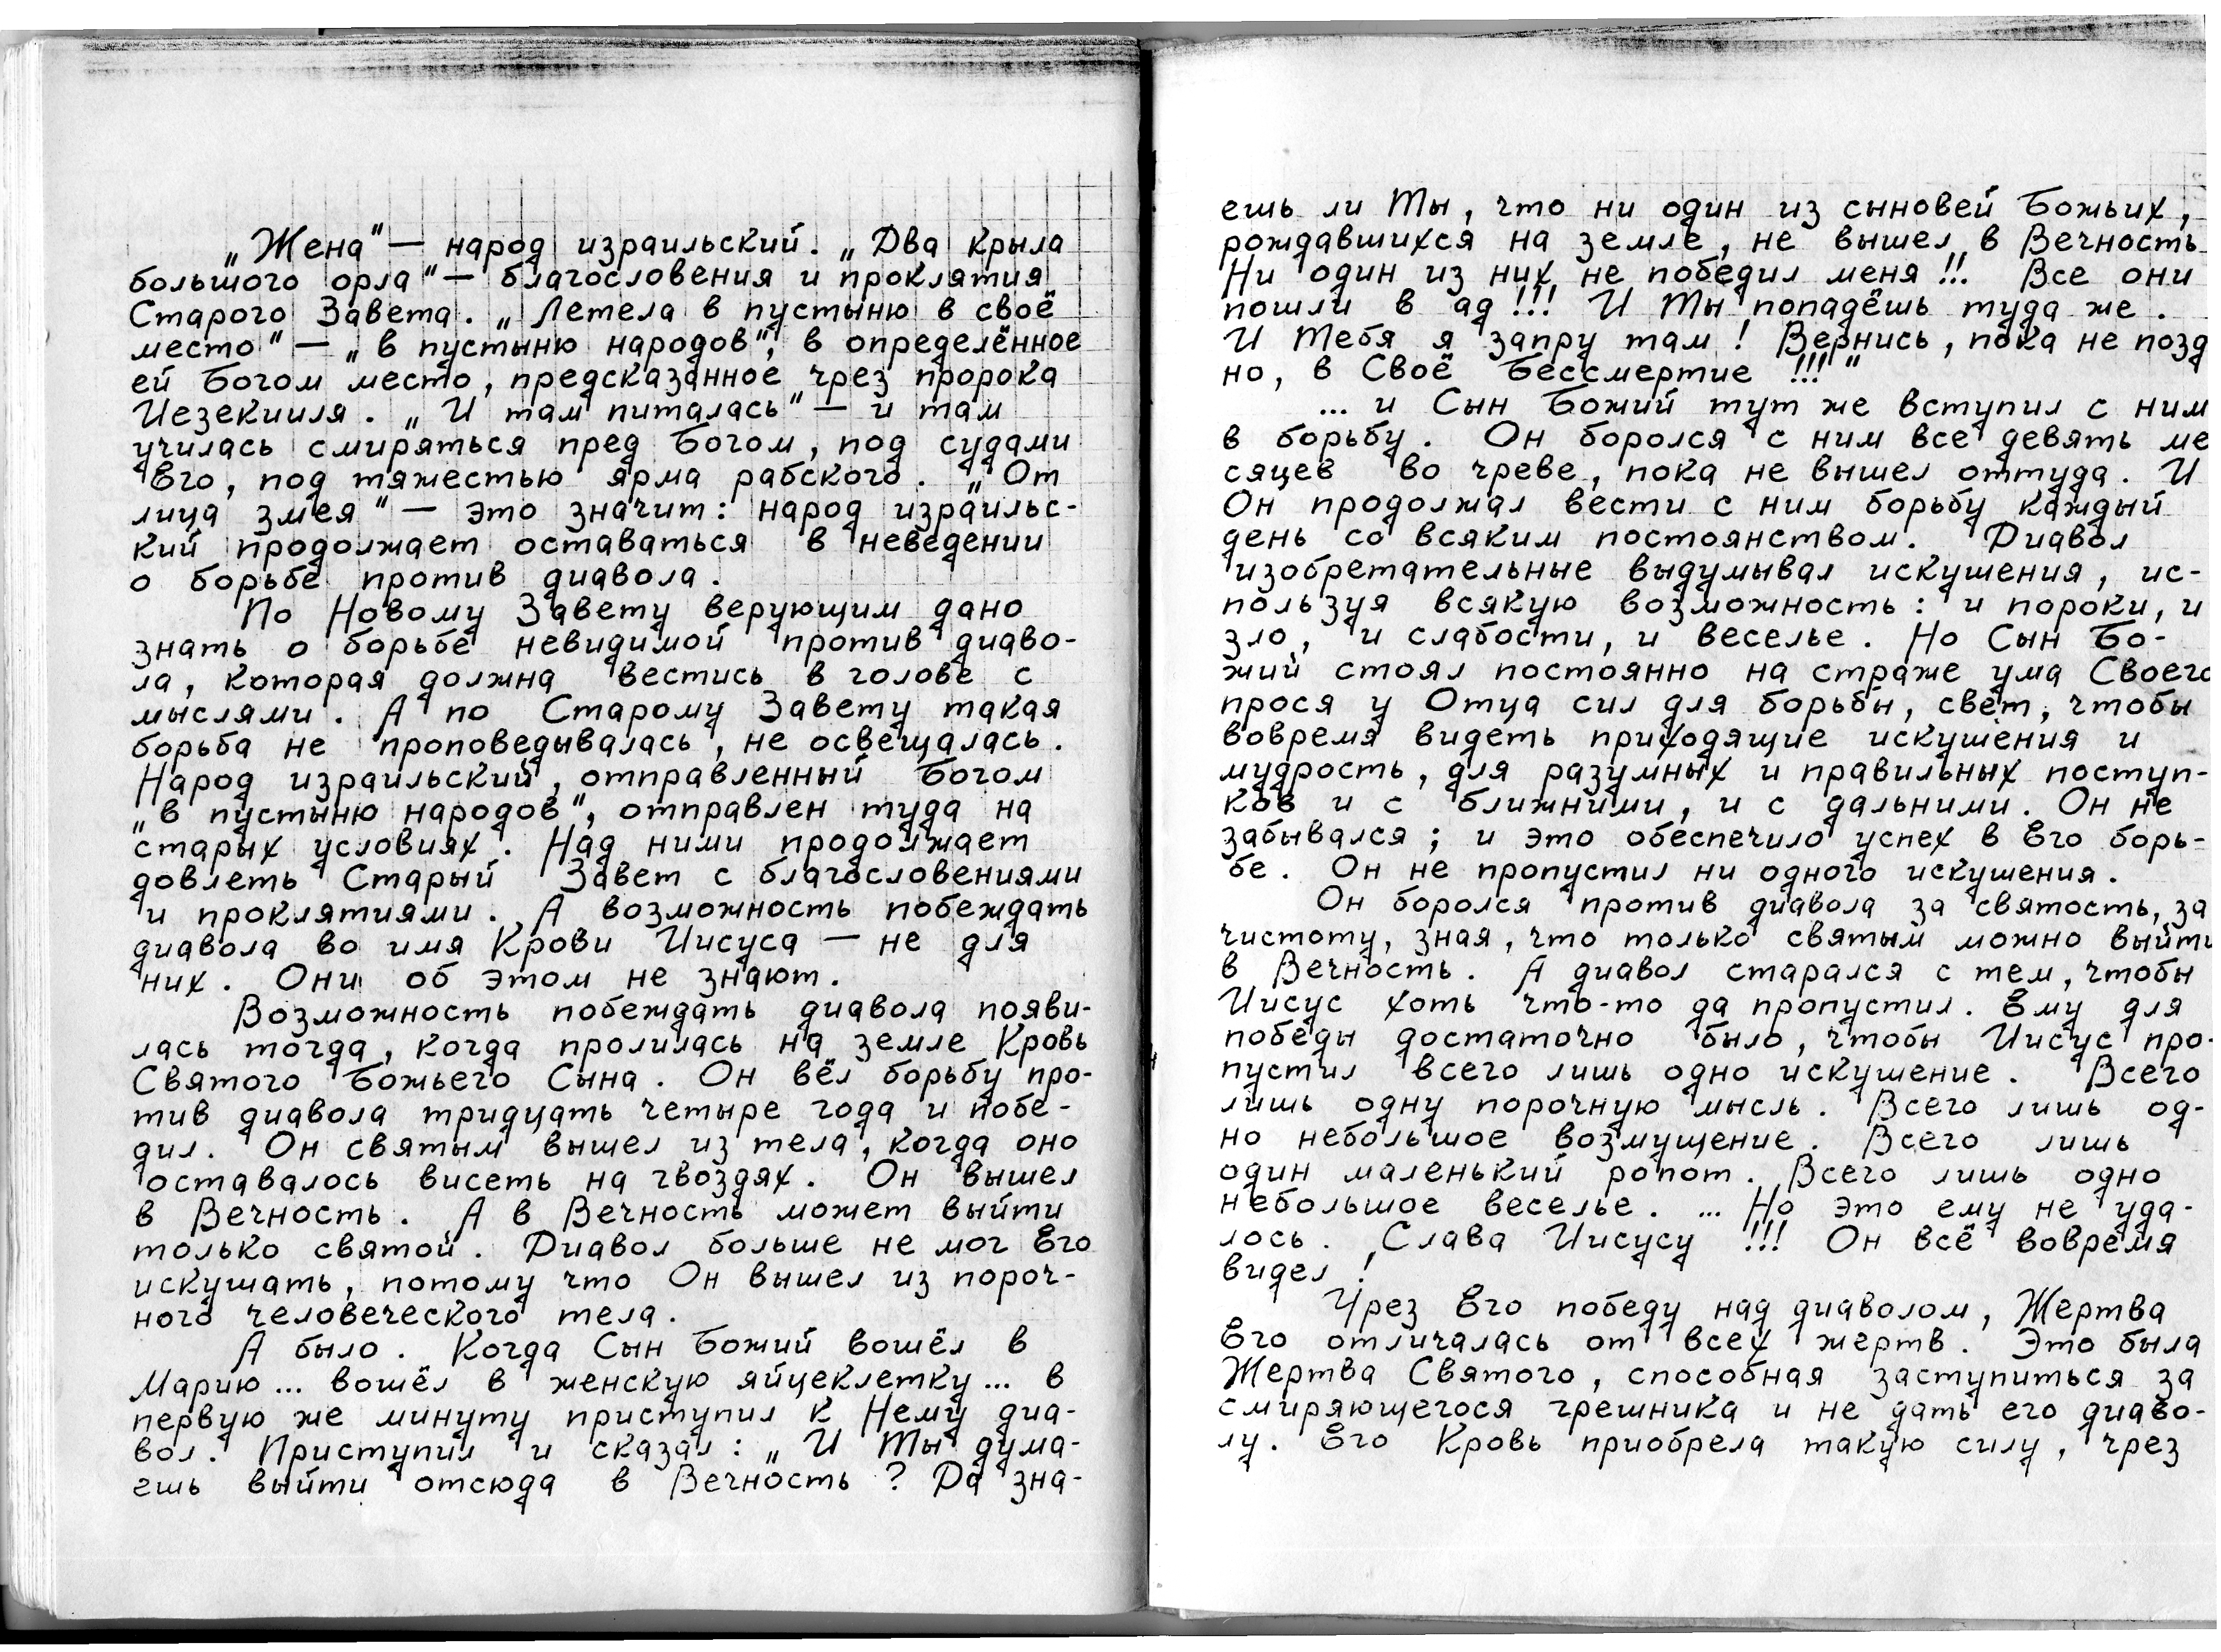 „Жена" — народ израильский. „Два крыла
большого орла" — благословения и проклятия
Старого Завета. „Летела в пустыню в своё
место" — „в пустыню народов", в определённое
ей Богом место, предсказанное чрез пророка
Иезекииля. „И там питалась" — и там
училась смиряться пред Богом, под судами
Его, под тяжестью ярма рабского. „От
лица змея" — это значит: народ израильс-
кий продолжает оставаться в неведении
о борьбе против диавола.
По Новому Завету верующим дано
знать о борьбе невидимой против диаво-
ла, которая должна вестись в голове с
мыслями. А по Старому Завету такая
борьба не проповедывалась, не освещалась.
Народ израильский, отправленный Богом
„в пустыню народов", отправлен туда на
старых условиях. Над ними продолжает
довлеть Старый Завет с благословениями
и проклятиями. А возможность побеждать
диавола во имя Крови Иисуса — не для
них. Они об этом не знают.
Возможность побеждать диавола появи-
лась тогда, когда пролилась на земле Кровь
Святого Божьего Сына. Он вёл борьбу про-
тив диавола тридцать четыре года и побе-
дил. Он святым вышел из тела, когда оно
оставалось висеть на гвоздях. Он вышел
в Вечность. А в Вечность может выйти
только святой. Диавол больше не мог Его
искушать, потому что Он вышел из пороч-
ного человеческого тела.
А было. Когда Сын Божий вошёл в
Марию... вошёл в женскую яйцеклетку... в
первую же минуту приступил к Нему диа-
вол. Приступил и сказал: „И Ты дума-
ешь выйти отсюда в Вечность? Да зна-
ешь ли Ты, что ни один из сыновей Божьих,
рождавшихся на земле, не вышел в Вечность
Ни один из них не победил меня!!! Все они
пошли в ад!!! И Ты попадёшь туда же.
И Тебя я запру там! Вернись, пока не позд
но, в Своё Бессмертие!!!"
... и Сын Божий тут же вступил с ним
в борьбу. Он боролся с ним все девять ме
сяцев во чреве, пока не вышел оттуда. И
Он продолжал вести с ним борьбу каждый
день со всяким постоянством. Диавол
изобретательные выдумывал искушения, ис-
пользуя всякую возможность: и пороки, и
зло, и слабости, и веселье. Но Сын Бо-
жий стоял постоянно на страже ума Своего
прося у Отца сил для борьбы, свет, чтобы
вовремя видеть приходящие искушения и
мудрость, для разумных и правильных поступ-
ков и с ближними, и с дальними. Он не
забывался; и это обеспечило успех в Его борь-
бе. Он не пропустил ни одного искушения.
Он боролся против диавола за святость, за
чистоту, зная, что только святым можно выйти
в Вечность. А диавол старался с тем, чтобы
Иисус хоть что-то да пропустил. Ему для
победы достаточно было, чтобы Иисус про-
пустил всего лишь одно искушение. Всего
лишь одну порочную мысль. Всего лишь од-
но небольшое возмущение. Всего лишь
один маленький ропот. Всего лишь одно
небольшое веселье. ... Но это ему не уда-
лось. Слава Иисусу!!! Он всё вовремя
видел!
Чрез Его победу над диаволом, Жертва
Его отличалась от всех жертв. Это была
Жертва Святого, способная заступиться за
смиряющегося грешника и не дать его диаво-
лу. Его Кровь приобрела такую силу, чрез